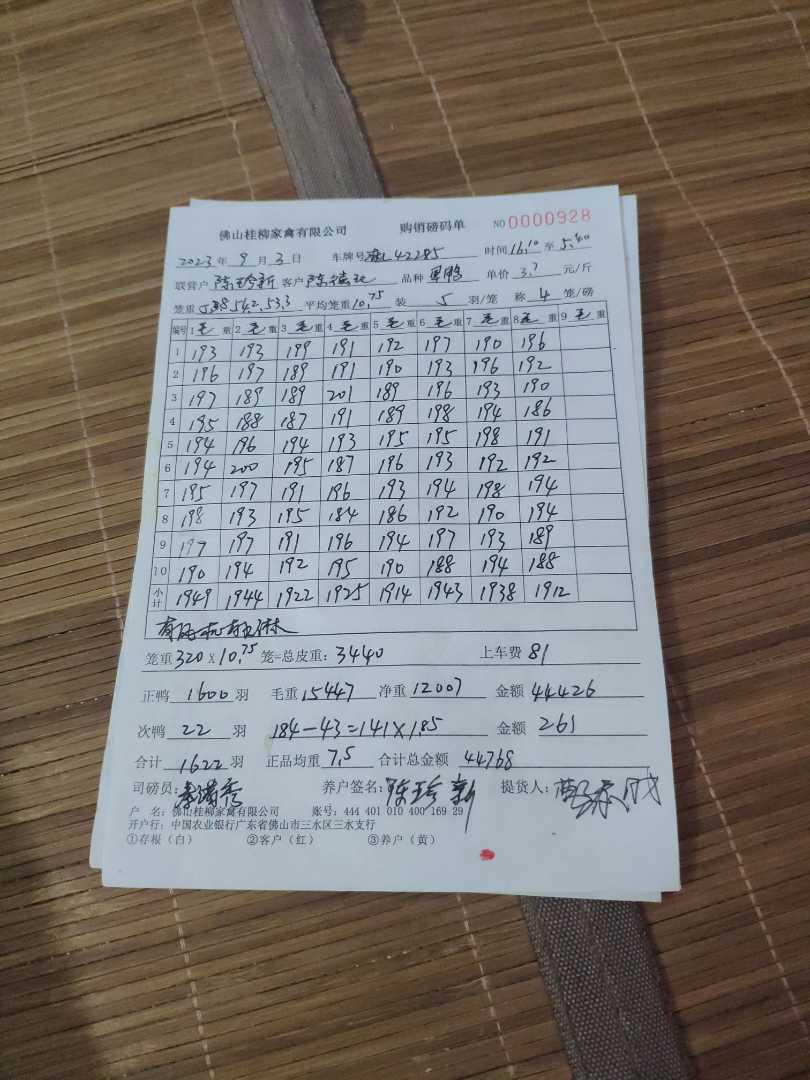 佛山桂柳家禽有限公司 购销磅码单 NO 0000928
2023 年 9 月 3 日 车牌号 42285 时间 16:10 至 5:40
联营户 陈珍新 客户 陈德 品种 鸭 单价 3.7 元/斤
笼重 54.2.53.3 平均笼重 10.75 装 5 羽/笼 称 4 笼/磅
编号 1 毛 重 2 毛 重 3 毛 重 4 毛 重 5 毛 重 6 毛 重 7 毛 重 8 毛 重 9 毛 重
1 193 193 199 191 192 197 190 196
2 196 197 189 191 190 193 196 192
3 197 189 189 201 189 196 193 190
4 195 188 187 191 189 198 194 186
5 194 196 194 193 195 195 198 191
6 194 200 195 187 196 193 192 192
7 195 197 191 196 193 194 198 194
8 198 193 195 184 186 192 190 194
9 197 197 191 196 194 197 193 189
10 190 194 192 195 190 188 194 188
小计 1949 1944 1922 1925 1914 1943 1938 1912
笼重 320 × 10.75 笼=总皮重: 3440 上车费 81
正鸭 1600 羽 毛重 15447 净重 12007 金额 44426
次鸭 22 羽 184-43=141×1.85 金额 261
合计 1622 羽 正品均重 7.5 合计总金额 44768
司磅员: 养户签名: 陈珍新 提货人:
户 名: 佛山桂柳家禽有限公司 账号: 444 401 010 400 169 29
开户行: 中国农业银行广东省佛山市三水区三水支行
①存根(白) ②客户(红) ③养户(黄)